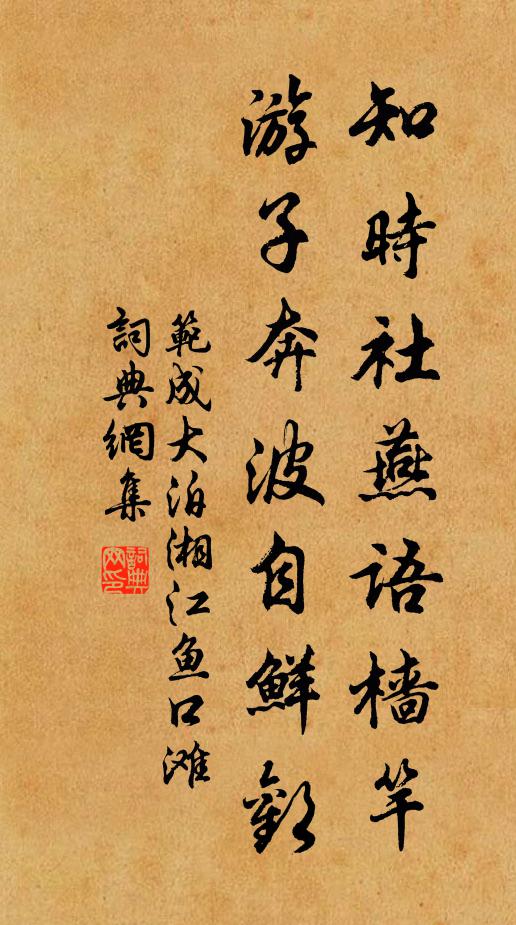 知時社燕語檣竿
游子奔波自鮮歡
範成大泊湘江鱼口滩
詞典網集
詞典网印